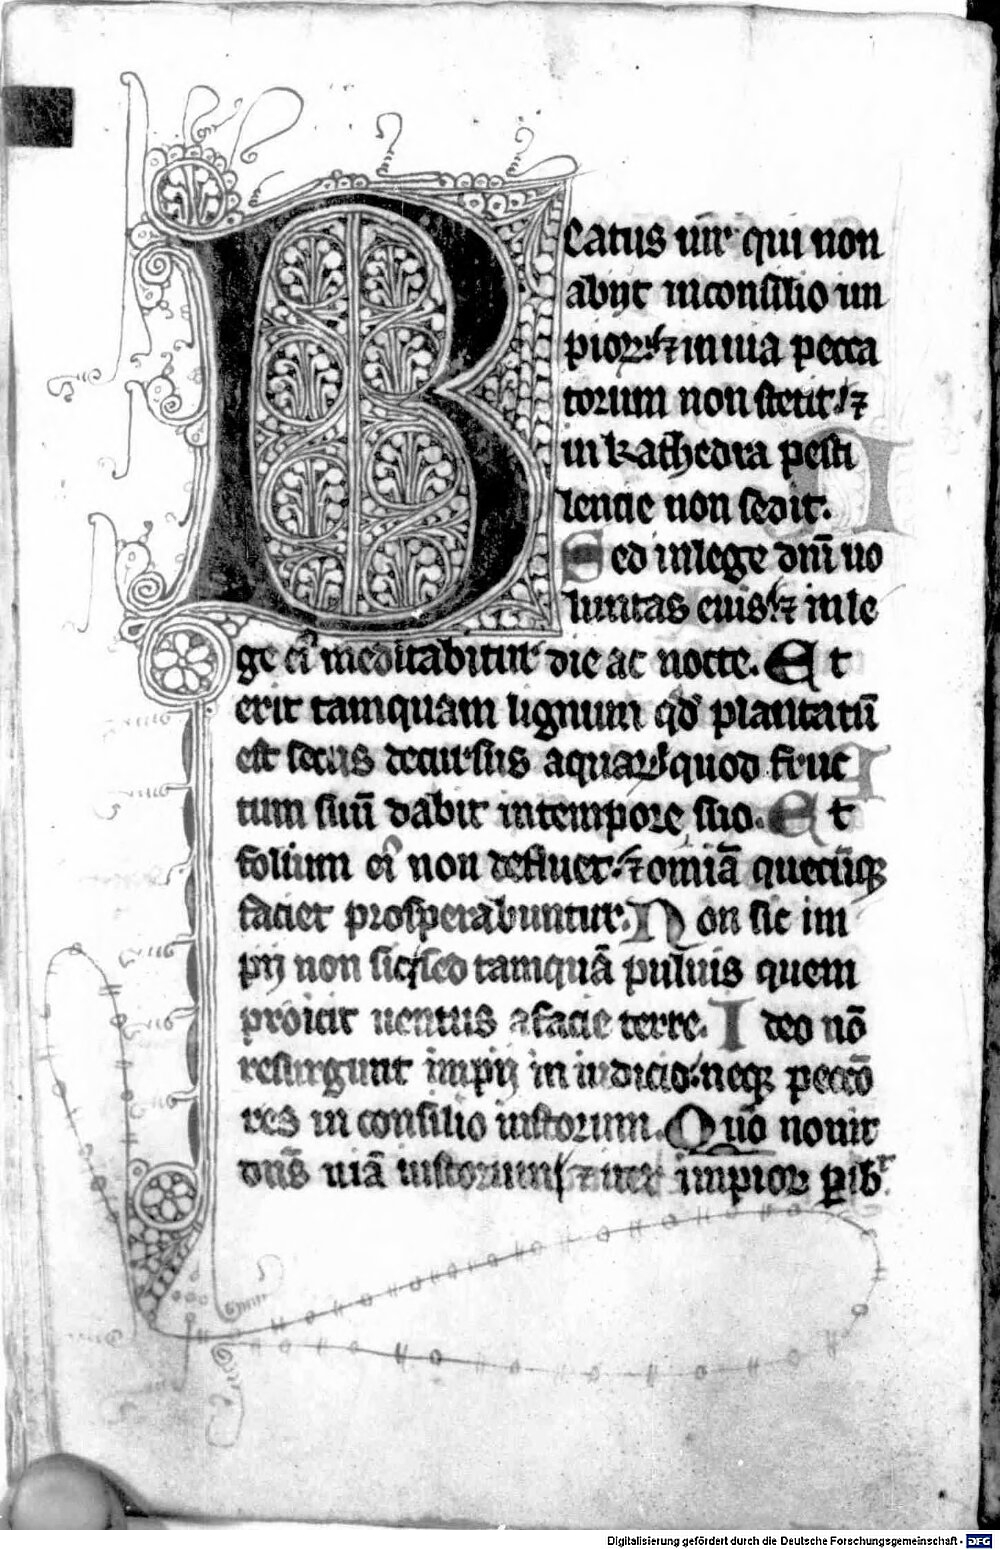 Beatus uir qui non
abijt inconsilio im
piorꝝ ⁊ in uia pecca
torum non stetit ⁊
in kathedra pesti
lencie non sedit.
Sed inlege dn̄i uo
luntas eius ⁊ in le
ge eiꝰ meditabitur die ac nocte. Et
erit tamquam lignum qd̓ plantatū
est secus decursus aquarꝝ quod fruc
tum suū dabit intempore suo. Et
folium eiꝰ non defluet ⁊ omīa quecūqꝫ
faciet prosperabuntur. Non sic im
pij non sic sed tamquā puluis quem
proicit uentus afacie terre. Ideo nō
resurgunt impij in iudicio neqꝫ peccō
res in consilio iustorum. Quō nouit
dn̄s uiā iustorum ⁊ iter impiorꝝ ꝑib
Digitalisierung gefördert durch die Deutsche Forschungsgemeinschaft - DFG